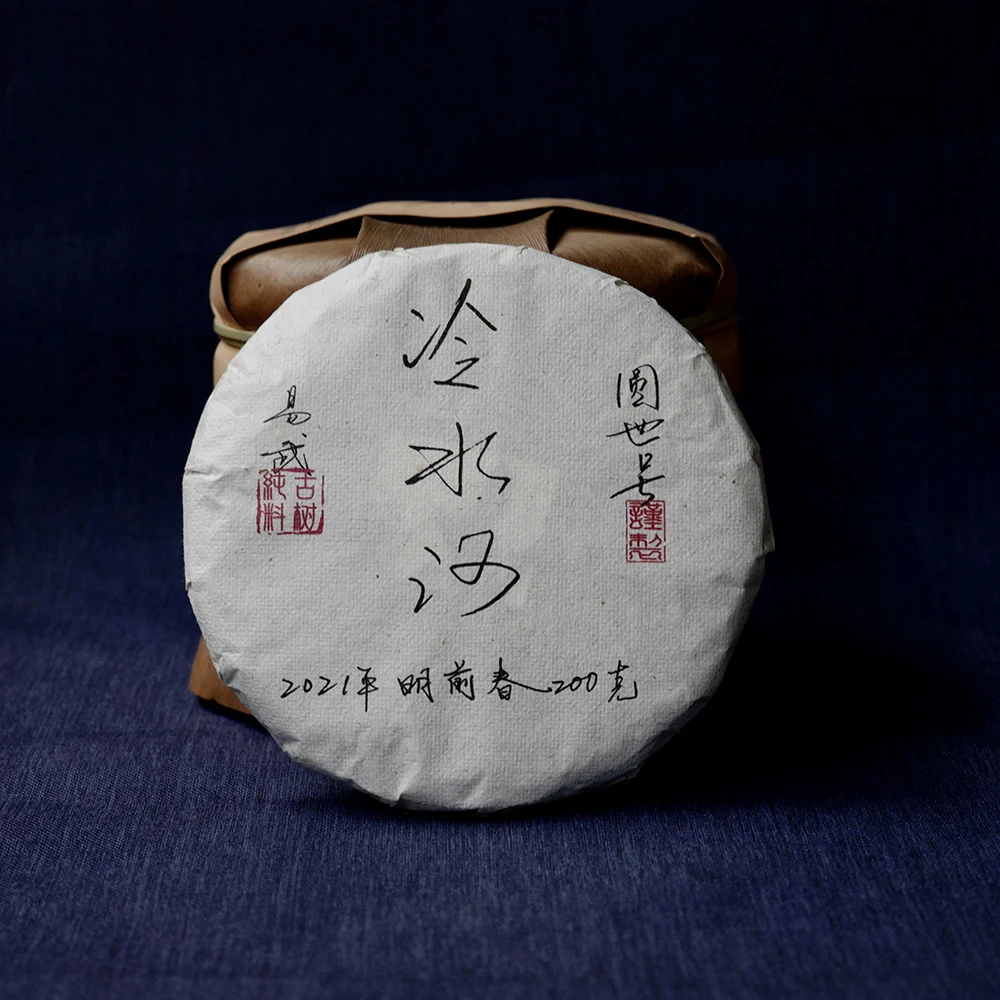 冷水河
圆世号
謹製
易武
古树
純料
2021年 明前春 200克